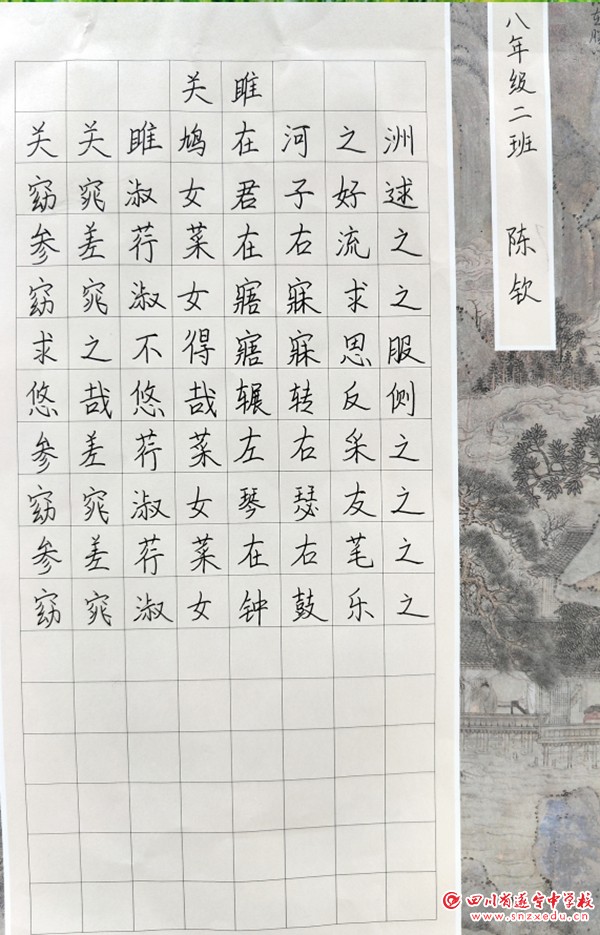 关雎
关关雎鸠在河之洲
窈窕淑女君子好逑
参差荇菜在右流之
窈窕淑女寤寐求之
求之不得寤寐思服
悠哉悠哉辗转反侧
参差荇菜左右采之
窈窕淑女琴瑟友之
参差荇菜在右芼之
窈窕淑女钟鼓乐之
八年级二班 陈钦
四川省遂宁中学校
www.snzxedu.cn